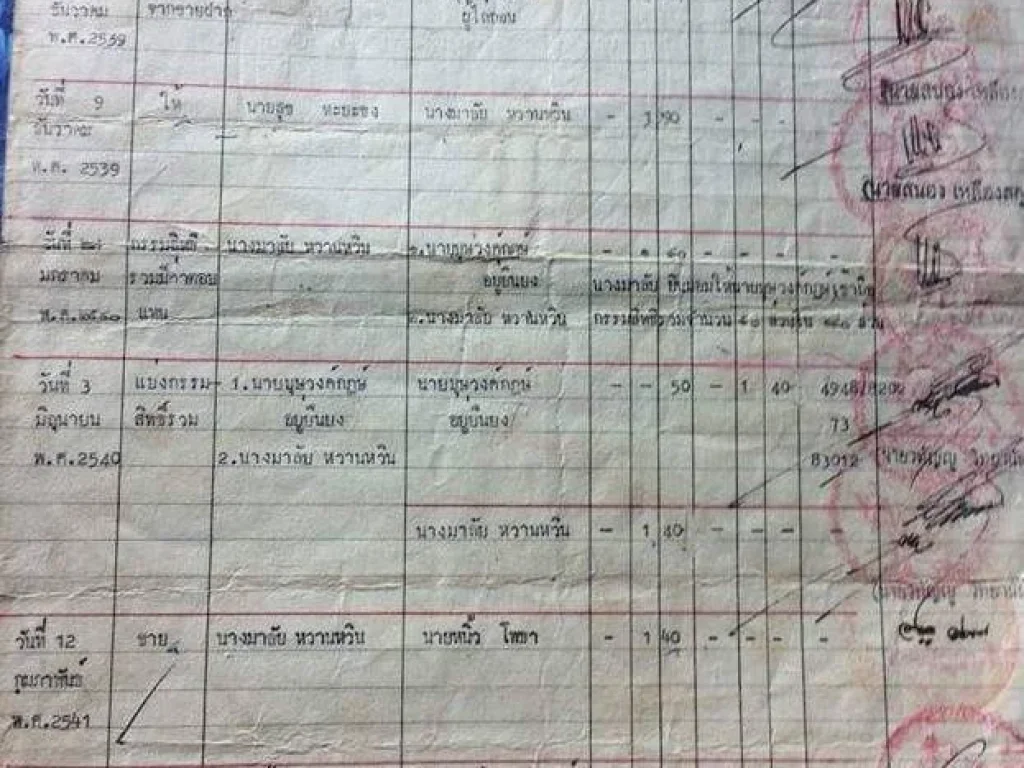 ธันวาคม
จากขายฝาก
พ.ศ.2539
วันที่ 9 ให้ นายสุข นางมาลัย หวานหวิน - 3 90 - - - -
ธันวาคม
พ.ศ. 2539
(นายสนอง เหลือง
วันที่ ๒๗ กรรมสิทธิ์ นางมาลัย หวานหวิน ๑.นายบุษวงค์กฤษ์ - ๑ ๙๐ - - - -
มกราคม รวมมีค่าตอบ อยู่ยืนยง นางมาลัย
พ.ศ.๒๕๔๐ แทน ๒.นางมาลัย หวานหวิน กรรมสิทธิ์รวมจำนวน ๕๐ ส่วนใน ๑๙๐ ส่วน
วันที่ 3 แบ่งกรรม- 1.นายบุษวงค์กฤษ์ นายบุษวงค์กฤษ์ - - 50 - 1 40 4948/8202
มิถุนายน สิทธิ์รวม อยู่ยืนยง อยู่ยืนยง 73
พ.ศ.2540 2.นางมาลัย หวานหวิน 83012
นางมาลัย หวานหวิน - 1 40 - - - -
วันที่ 12 ขาย นางมาลัย หวานหวิน นายหนิ้ว โทขา - 1 40 - - - -
กุมภาพันธ์
พ.ศ.2541